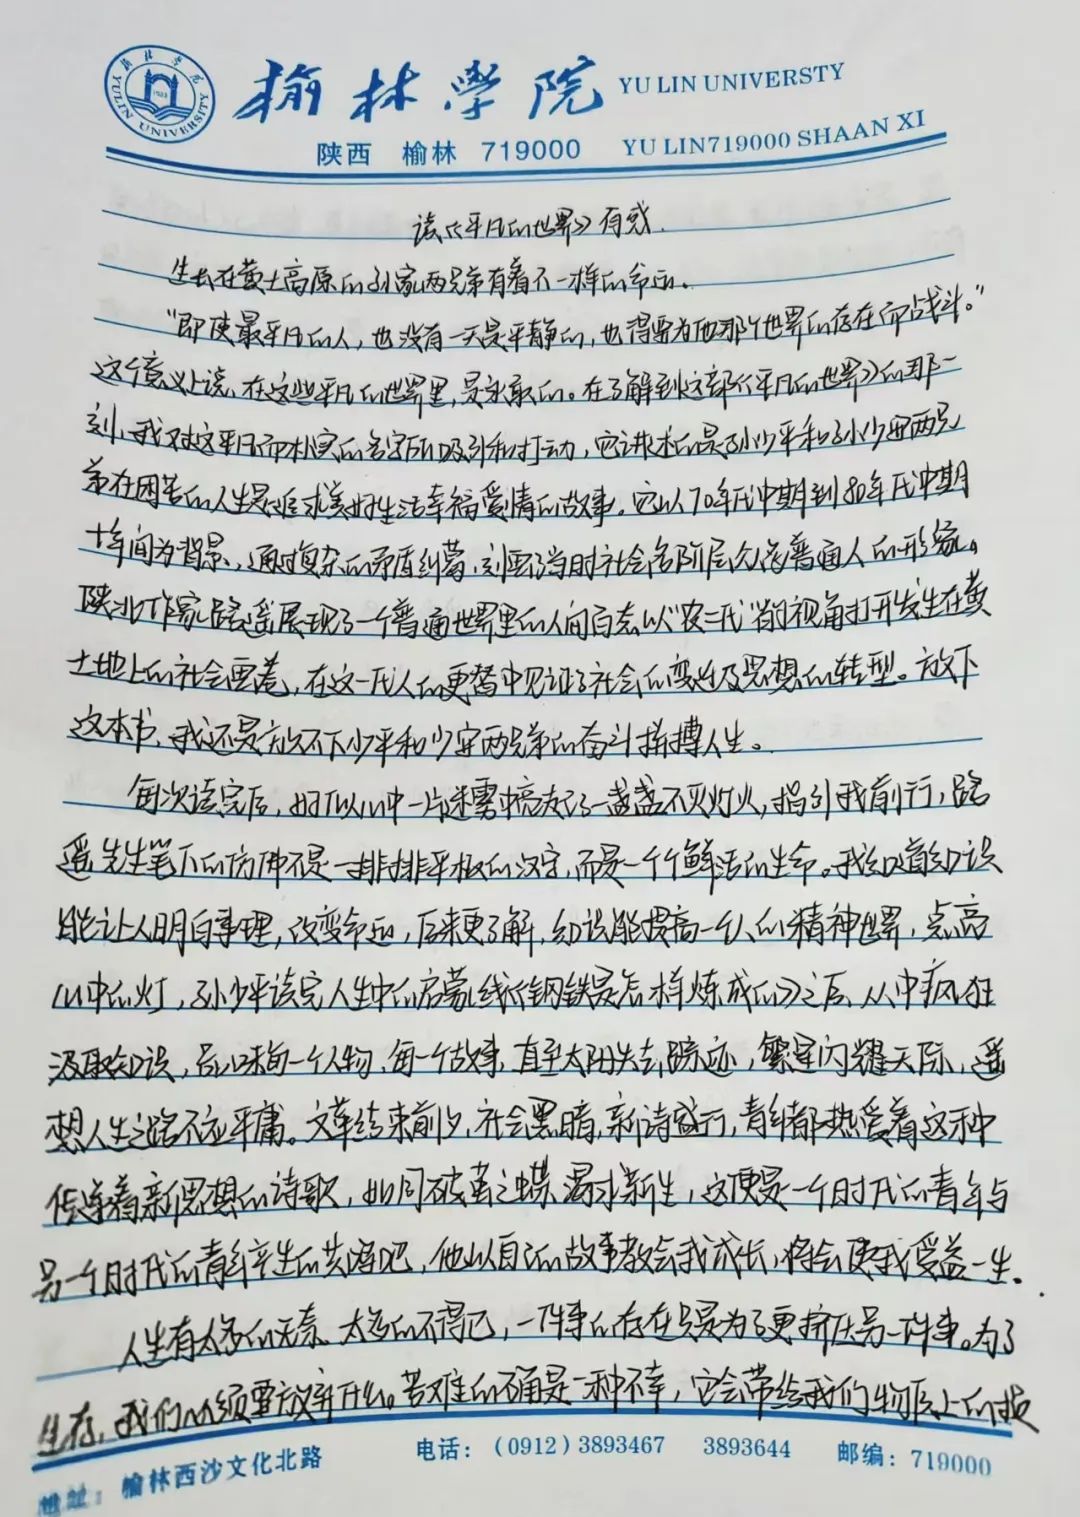 榆林学院 YU LIN UNIVERSTY
陕西 榆林 719000 YU LIN719000 SHAAN XI
读《平凡的世界》有感.
生长在黄土高原的孙家两兄弟有着不一样的命运。
“即使最平凡的人，也没有一天是平静的，也得要为他那个世界的存在而战斗。”
这个意义上说，在这些平凡的世界里，是永歌的。在了解到这部《平凡的世界》的那一
刻，我对这平凡而朴实的名字所吸引和打动，它讲述的是孙少平和孙少安两兄
弟在困苦的人生是追求美好生活幸福爱情的故事。它以70年代中期到80年代中期
十年间为背景，通过复杂的矛盾纠葛，刻画了当时社会各阶层众多普通人的形象。
陕北作家路遥展现了一个普通世界里的人间百态以“农二代”的视角打开发生在黄
土地上的社会画卷，在这一代人的更替中见证了社会的变迁及思想的转型。放下
这本书，我还是放不下少平和少安两兄弟的奋斗拼搏人生。
每次读完后，好似心中一片迷雾中亮起了一盏盏不灭灯火，指引我前行，路
遥先生笔下的仿佛不是一排排平板的汉字，而是一个个鲜活的生命。我知道知识
能让人明白事理，改变命运，后来更了解，知识能提高一个人的精神世界，点亮
心中的灯，孙少平读完人生中的启蒙线《钢铁是怎样炼成的》之后，从中疯狂
汲取知识，品味每一个人物，每一个故事，直至太阳失去踪迹，繁星闪耀天际，遥
想人生之路不应平庸。文革结束前夕，社会黑暗，新诗盛行，青年都热爱着这种
传递着新思想的诗歌，如同破茧之蝶，渴求新生，这便是一个时代的青年与
另一个时代的青年产生的共鸣吧，他以自己的故事教会我成长，将会使我受益一生.
人生有太多的无奈，太多的不得已，一件事的存在只是为了更挤压另一件事。为了
生存，我们必须要放弃什么。苦难的确是一种不幸，它会带给我们物质上的损
地址：榆林西沙文化北路 电话：(0912)3893467 3893644 邮编：719000